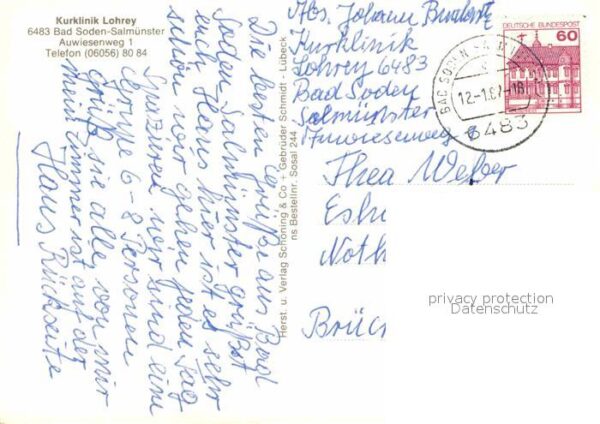 Kurklinik Lohrey
6483 Bad Soden-Salmünster
Auwiesenweg 1
Telefon (06056) 80 84
Die besten Grüße aus Bad
Soden-Salmünster grüßt
euch Hans hier ist es sehr
schön wir gehen jeden Tag
Spazieren wir sind eine
Grupp 6-8 Personen
Grüß sie alle von mir
mein Zimmer ist auf der
Hans Rückseite
Herst. u. Verlag Schöning & Co + Gebrüder Schmidt - Lübeck
ns Bestellnr. Sosal 244
Abs. Johann
Kurklinik
Lohrey 6483
Bad Soden
Salmünster
Auwiesenweg
Thea Weber
Noth
Brüc
DEUTSCHE BUNDESPOST
60
BAD SODEN-SALMÜNSTER
12-1.87-18
6483
privacy protection
Datenschutz